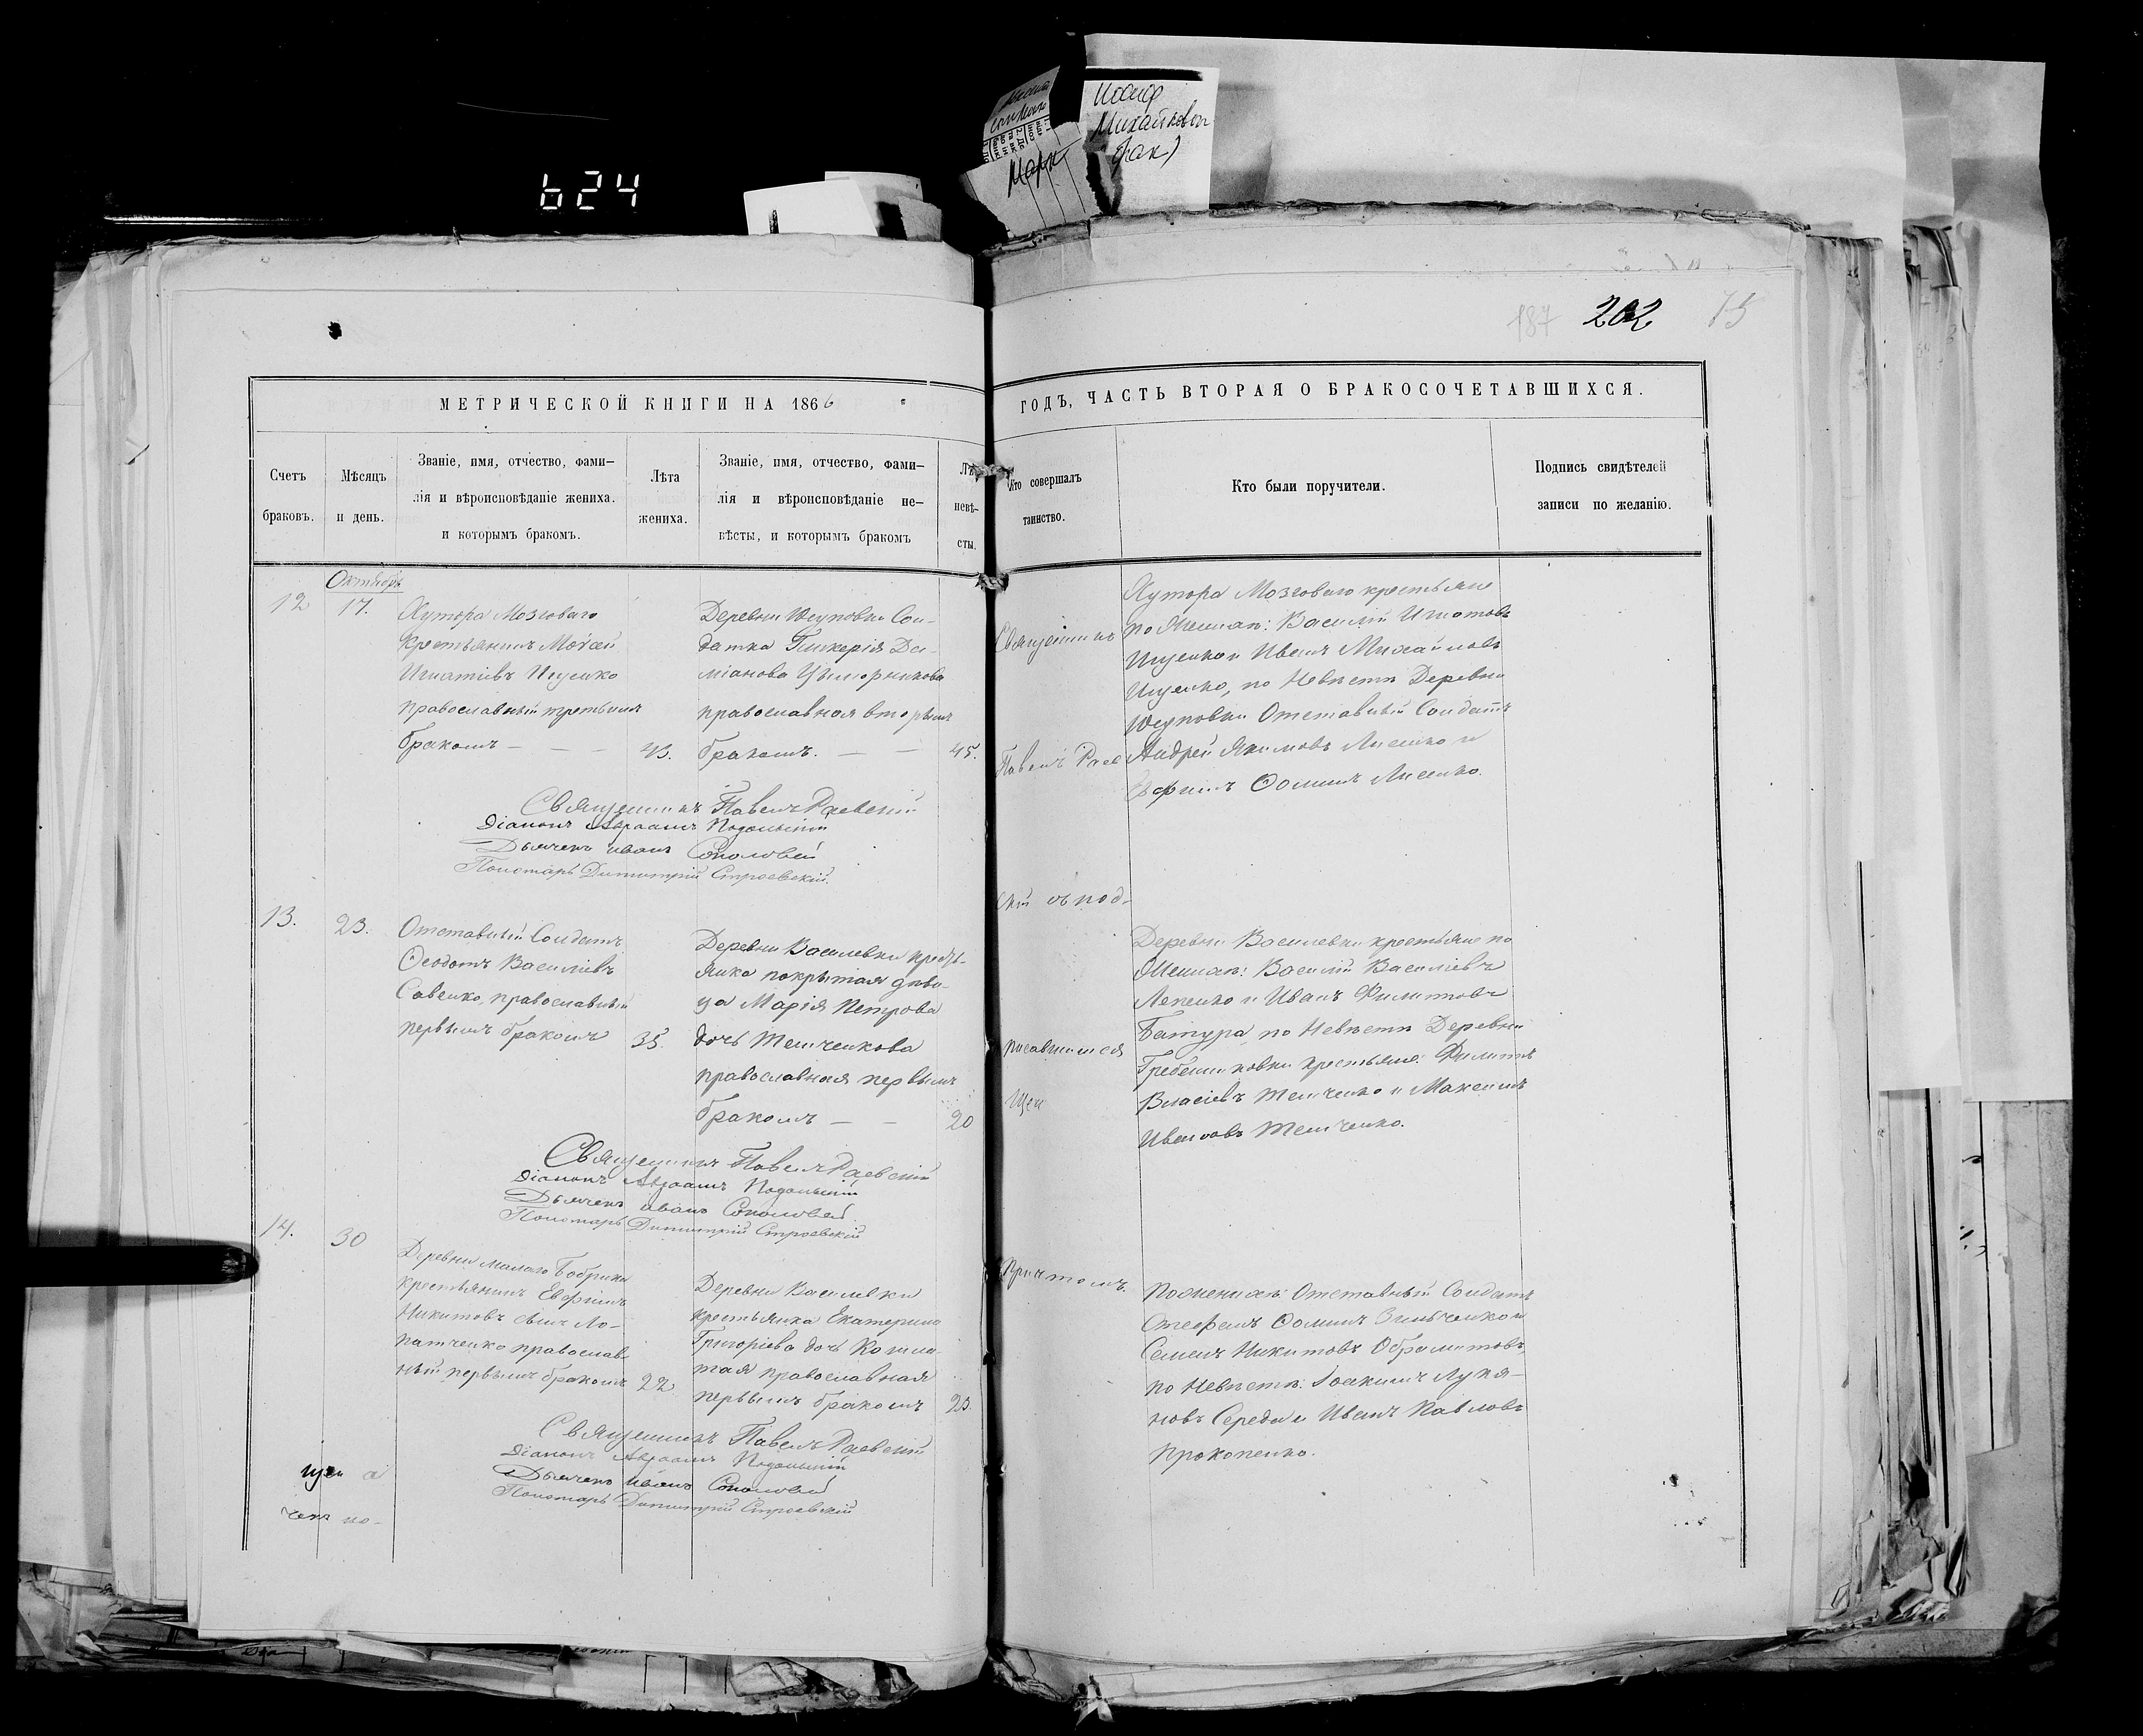 624
Иосиф
Михайлов
187 202 75
МЕТРИЧЕСКОЙ КНИГИ НА 1866
ГОДЪ, ЧАСТЬ ВТОРАЯ О БРАКОСОЧЕТАВШИХСЯ.
Счетъ браковъ.
Мѣсяцъ и день.
Званіе, имя, отчество, фами-
лія и вѣроисповѣданіе жениха.
и которымъ бракомъ.
Лѣта
жениха.
Званіе, имя, отчество, фами-
лія и вѣроисповѣданіе не-
вѣсты, и которымъ бракомъ
невѣ-
сты.
Кто совершалъ
таинство.
Кто были поручители.
Подпись свидѣтелей
записи по желанію.
Октябрь
12
17.
Хутора Мозговаго
крестьянинъ
Игнатіевъ Ищенко
православный третьимъ
бракомъ — — — 43.
Деревни Юсуповки Сол-
датка Гликерія Да-
міанова
православная вторымъ
бракомъ. — — 45.
Священникъ
Павелъ Раев
скій съ под-
писавшимся
Причтомъ.
Хутора Мозговаго крестьяне
по Женихѣ: Василій Игнатовъ
Ищенко и Иванъ Михайловъ
Ищенко, по Невѣстѣ Деревни
Юсуповки Отставный Солдатъ
Андрей Якимовъ Лисенко и
Ефимъ Ѳоминъ Лисенко.
Священникъ Павелъ Раевскій
Діаконъ Авраамъ
Дьячекъ Иванъ Соколовскій
Пономарь Димитрій Строевскій.
13.
23.
Отставный Солдатъ
Ѳеодотъ Василіевъ
Савенко, православный
первымъ бракомъ 35.
Деревни Василевки кресть-
янка покрытая дѣви-
ца Марія Петрова
дочь Темченкова
православная первымъ
бракомъ — — 20
Деревни Василевки крестьяне по
Женихѣ: Василій Василіевъ
Лепенко и Иванъ Филиповъ
Батура, по Невѣстѣ Деревни
Гребенниковки крестьяне: Филипъ
Власіевъ Темченко и Максимъ
Ивановъ Темченко.
Священникъ Павелъ Раевскій
Діаконъ Авраамъ
Дьячекъ Иванъ Соколовскій
Пономарь Димитрій Строевскій
14.
30
Деревни Малаго Бобрика
крестьянинъ Евфимъ
Никитовъ сынъ Ло-
патченко православ-
ный первымъ бракомъ 22
Деревни Василевки
крестьянка Екатерина
Григоріева дочь
православная
первымъ бракомъ 23.
По Женихѣ: Отставный Солдатъ
Стефанъ Ѳоминъ Зинченко и
Семенъ Никитовъ
по Невѣстѣ: Іоакимъ Лукя-
новъ Середа и Иванъ Павловъ
Прокопенко.
Священникъ Павелъ Раевскій
Діаконъ Авраамъ
Дьячекъ Иванъ Соколовскій
Пономарь Димитрій Строевскій